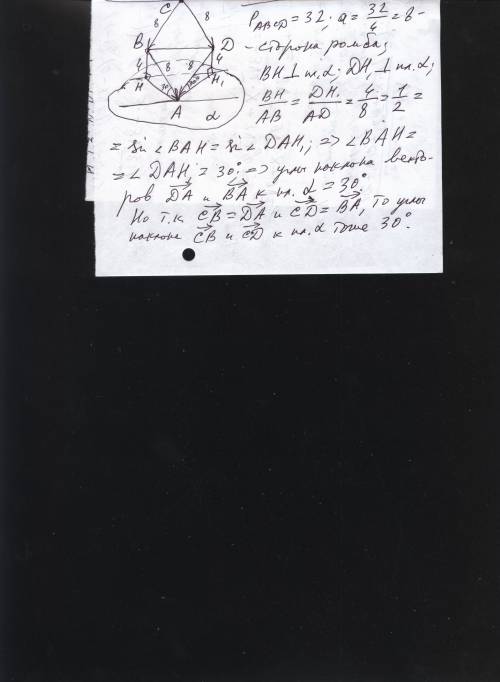 C
8 8
B D
4 8 8 4
H 30° 30° H₁
A α
P_ABCD = 32; a = 32/4 = 8 -
- сторона ромба;
BH ⊥ пл. α; DH₁ ⊥ пл. α;
BH/AB = DH₁/AD = 4/8 = 1/2 =
= sin ∠BAH = sin ∠DAH₁; => ∠BAH =
= ∠DAH₁ = 30° => углы наклона векто-
ров DA и BA к пл. α = 30°.
Но т.к CB = DA и CD = BA, то углы
наклона CB и CD к пл. α тоже 30°.